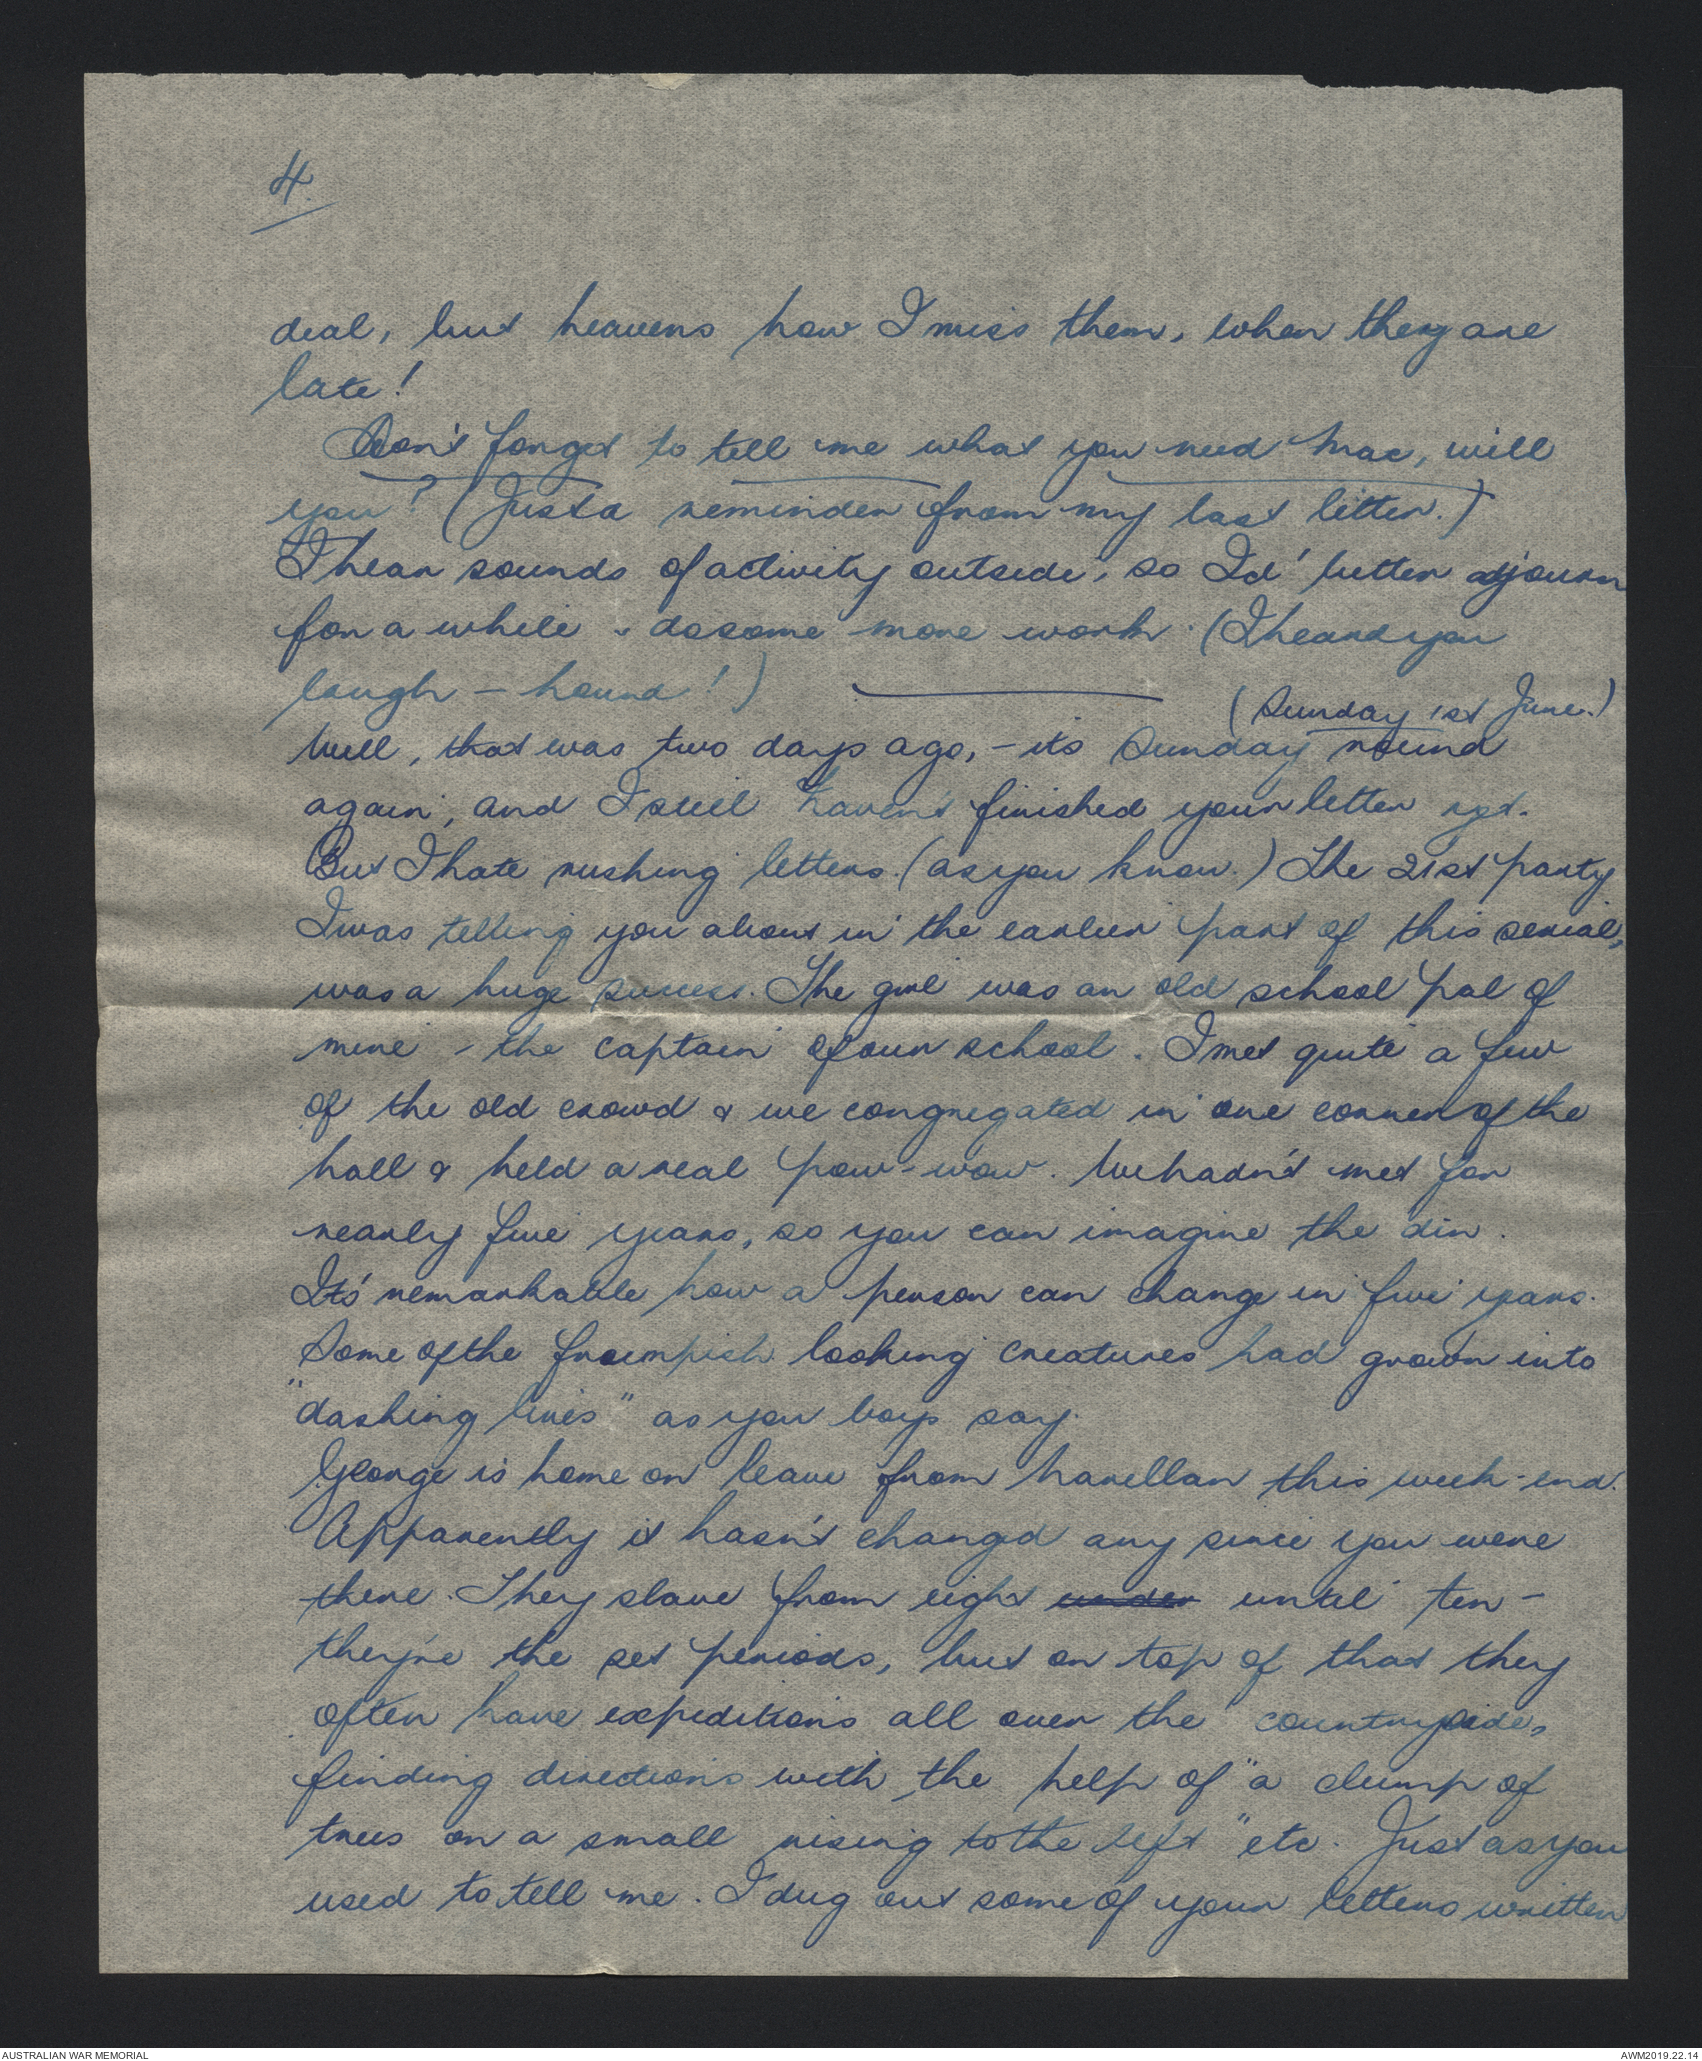 4.
deal, but heavens how I miss them, when they are
late!
Don't forget to tell me what you need Mac, will
you? (Just a reminder from my last letter.)
I hear sounds of activity outside, so Id' better adjourn
for a while & do some more work. (I heard you
laugh - hound!)
(Sunday 1st June.)
Well, that was two days ago, - its Sunday round
again, and I still haven't finished your letter yet.
But I hate rushing letters. (as you know.) The 21st party
I was telling you about in the earlier part of this serial,
was a huge success. The girl was an old school pal of
mine - the captain of our school. I met quite a few
of the old crowd & we congregated in one corner of the
hall & held a real pow-wow. We hadn't met for
nearly five years, so you can imagine the din.
Its' remarkable how a person can change in five years.
Some of the frumpish looking creatures had grown into
"dashing lines" as you boys say.
George is home on leave from Narellan this week-end.
Apparently it hasn't changed any since you were
there. They slave from eight under until ten -
they're the set periods, but on top of that they
often have expeditions all over the countryside,
finding directions with the help of "a clump of
trees on a small rising to the left" etc. Just as you
used to tell me. I dug out some of your letters written
AUSTRALIAN WAR MEMORIAL
AWM2019.22.14